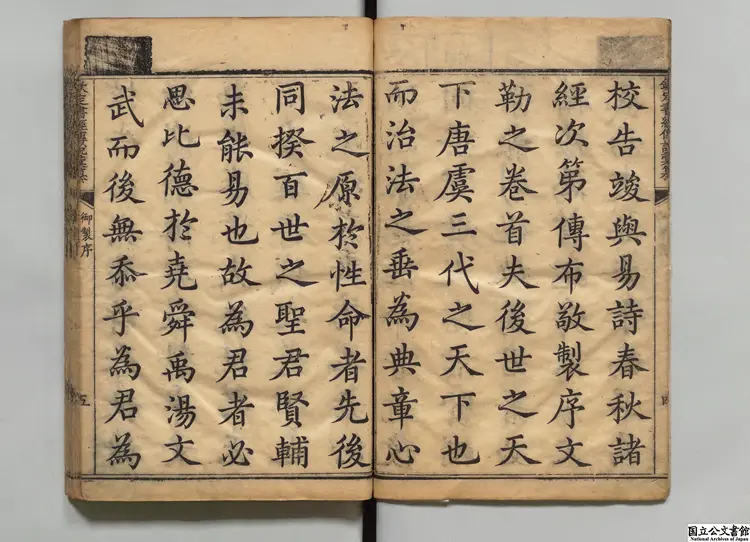 校告竣與易詩春秋諸
經次第傳布敬製序文
勒之卷首夫後世之天
下唐虞三代之天下也
而治法之垂為典章心
法之原於性命者先後
同揆百世之聖君賢輔
未能易也故為君者必
思比德於堯舜禹湯文
武而後無忝乎為君為
御製序
五
国立公文書館
National Archives of Japan